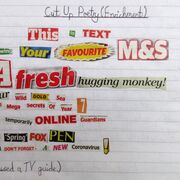 Cut Up Poetry (Enrichment)
This is TEXT
Your FAVOURITE M&S
fresh hugging monkey!
Our Wild GOLD Sea
Mega Secrets Of Year 7
temporarily ONLINE Guardians
Spring FOX PEN
DON'T FORGET A NEW Coronavirus!
used a TV guide)